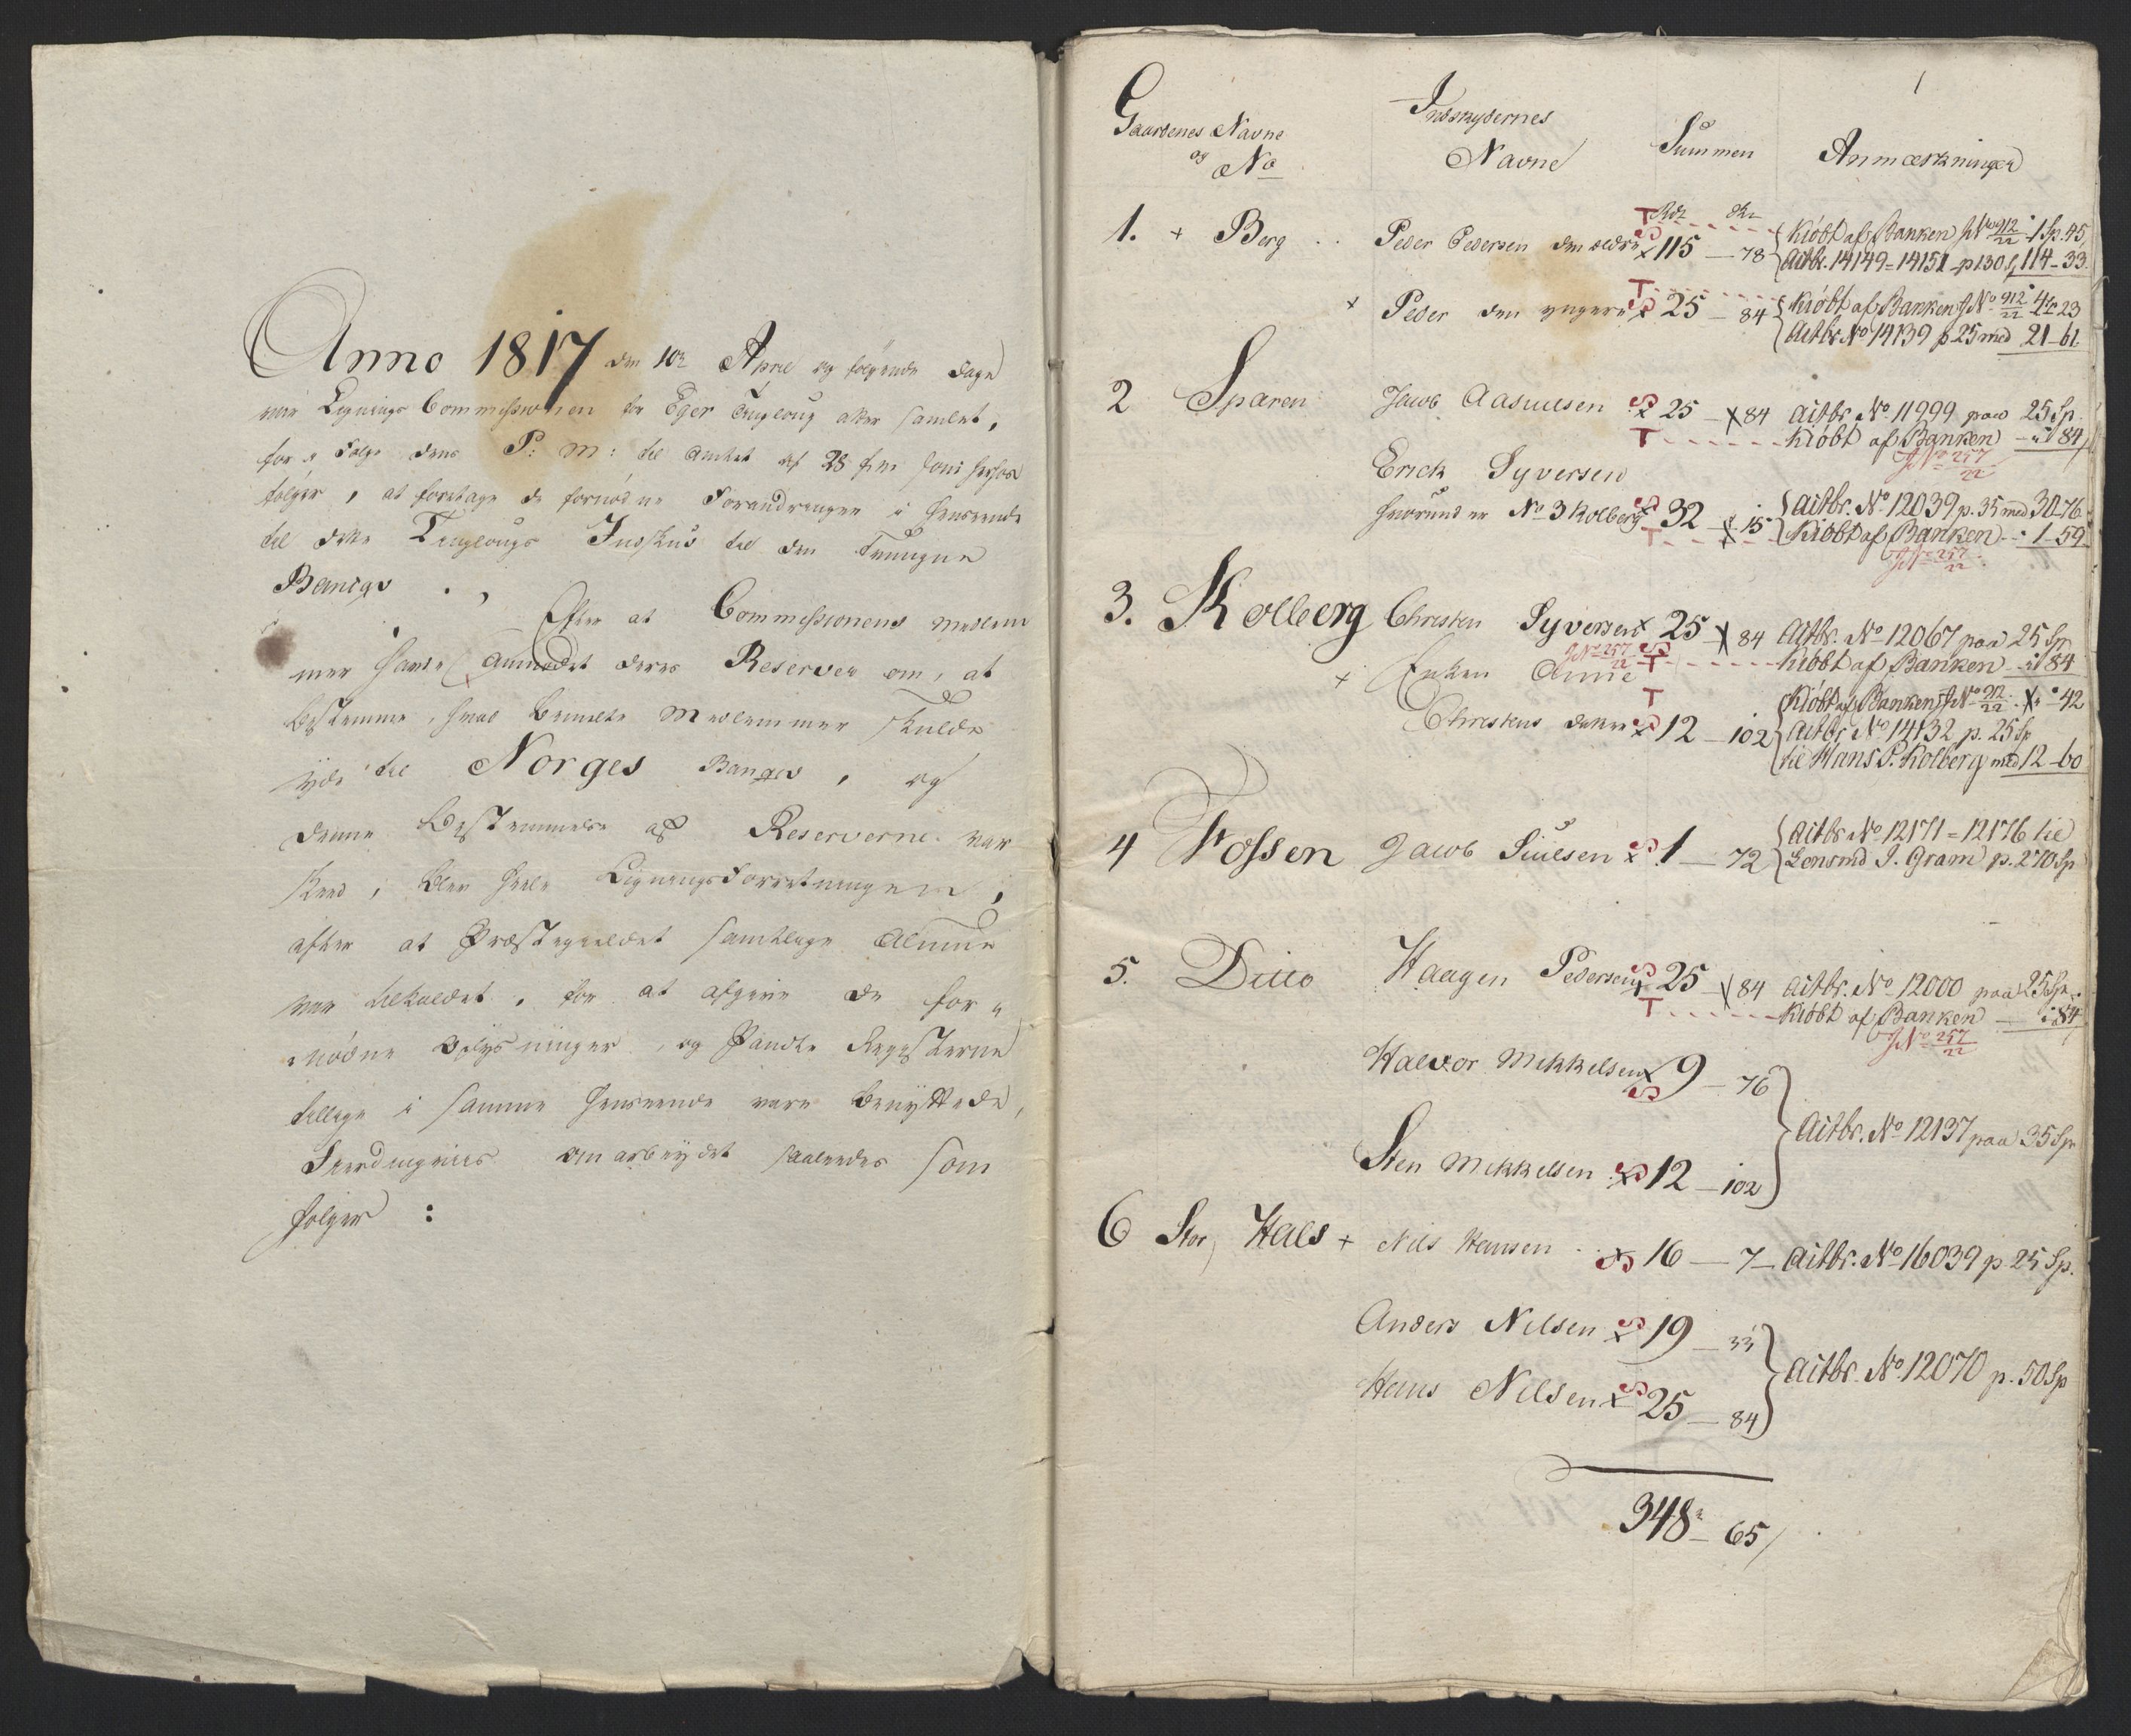 Anno 1817 den 10de April og følgende Dage
var Lignings Commissionen for Eger Tinglaug atter samlet,
for i Følge dens P: M: til Amtet af 28 som herhos
følger, at foretage de fornødne Forandringer i Henseende
til dette Tinglaugs Indskud til den Trungne
Banqve.
Efter at Commissionens Medlem
mer havde anmodet deres Reserver om, at
bestemme, hvad bemelte Medlemmer skulde
yde til Norges Banqve, og
denne Bestemmelse af Reserverne var
skeed, blev heele Ligningsforretningen,
efter at Præstegieldet samtlige Almue
var tilkaldet, for at afgive de for
nødne Oplysninger, og Pandte Registerne
tillige i samme Henseende vare benyttede,
omarbeydet saaledes som
følger:
1
Gaardenes Navne
og
No
Indskydernes
Navne
Summen
Anmærkninger
1. + Berg .. Peder Pedersen den ældre 115 - 78
Kiöbt af Banken JNo 912/22 1 Sp. 45
Actbr. 14149=14151 p 130 S 114-33.
+ Peder den yngere 25 - 84
Kiöbt af Banken JNo 912/22 4 - 23
Actbr No 14139 p 25 med 21-61.
2 Sparen Jacob Aasulsen 25 - 84 Actbr No 11999 paa 25 Sp.
Kiöbt af Banken - " 84
JNo 257/22
Erick Syversen
herunder No 3 Kolberg 32 - 15
Actbr. No 12039 p. 35 med 30-76.
Kiöbt af Banken - 1-59
JNo 257/22
3. Kolberg Christen Syversen 25 - 84 Actbr. No 12067 paa 25 Sp
JNo 257/22 Kiöbt af Banken - " 84
+ Enken Anne
Christens datter 12 - 102
Kiöbt af Banken JNo 912/22 " - 42
Actbr No 14132 p. 25 Sp
til Hans P. Kolberg med 12-60
4 Fossen Jacob Siulsen 1 - 72
Actbr No 12171=12176 til
Lensmd J. Gram p. 270 Sp
5. Ditto Haagen Pedersen 25 - 84 Actbr. No 12000 paa 25 Sp.
Kiöbt af Banken - " 84
JNo 257/22
Halvor Mikkelsen 9 - 76
Actbr. No 12137 paa 35 Sp
Sten Mikkelsen 12 - 102
6 Stor, Hals + Nils Hansen 16 - 7 - Actbr. No 16039 p 25 Sp.
Anders Nilsen 19 - 33
Actbr. No 12070 p. 50 Sp
Hans Nilsen 25 - 84
348 - 65